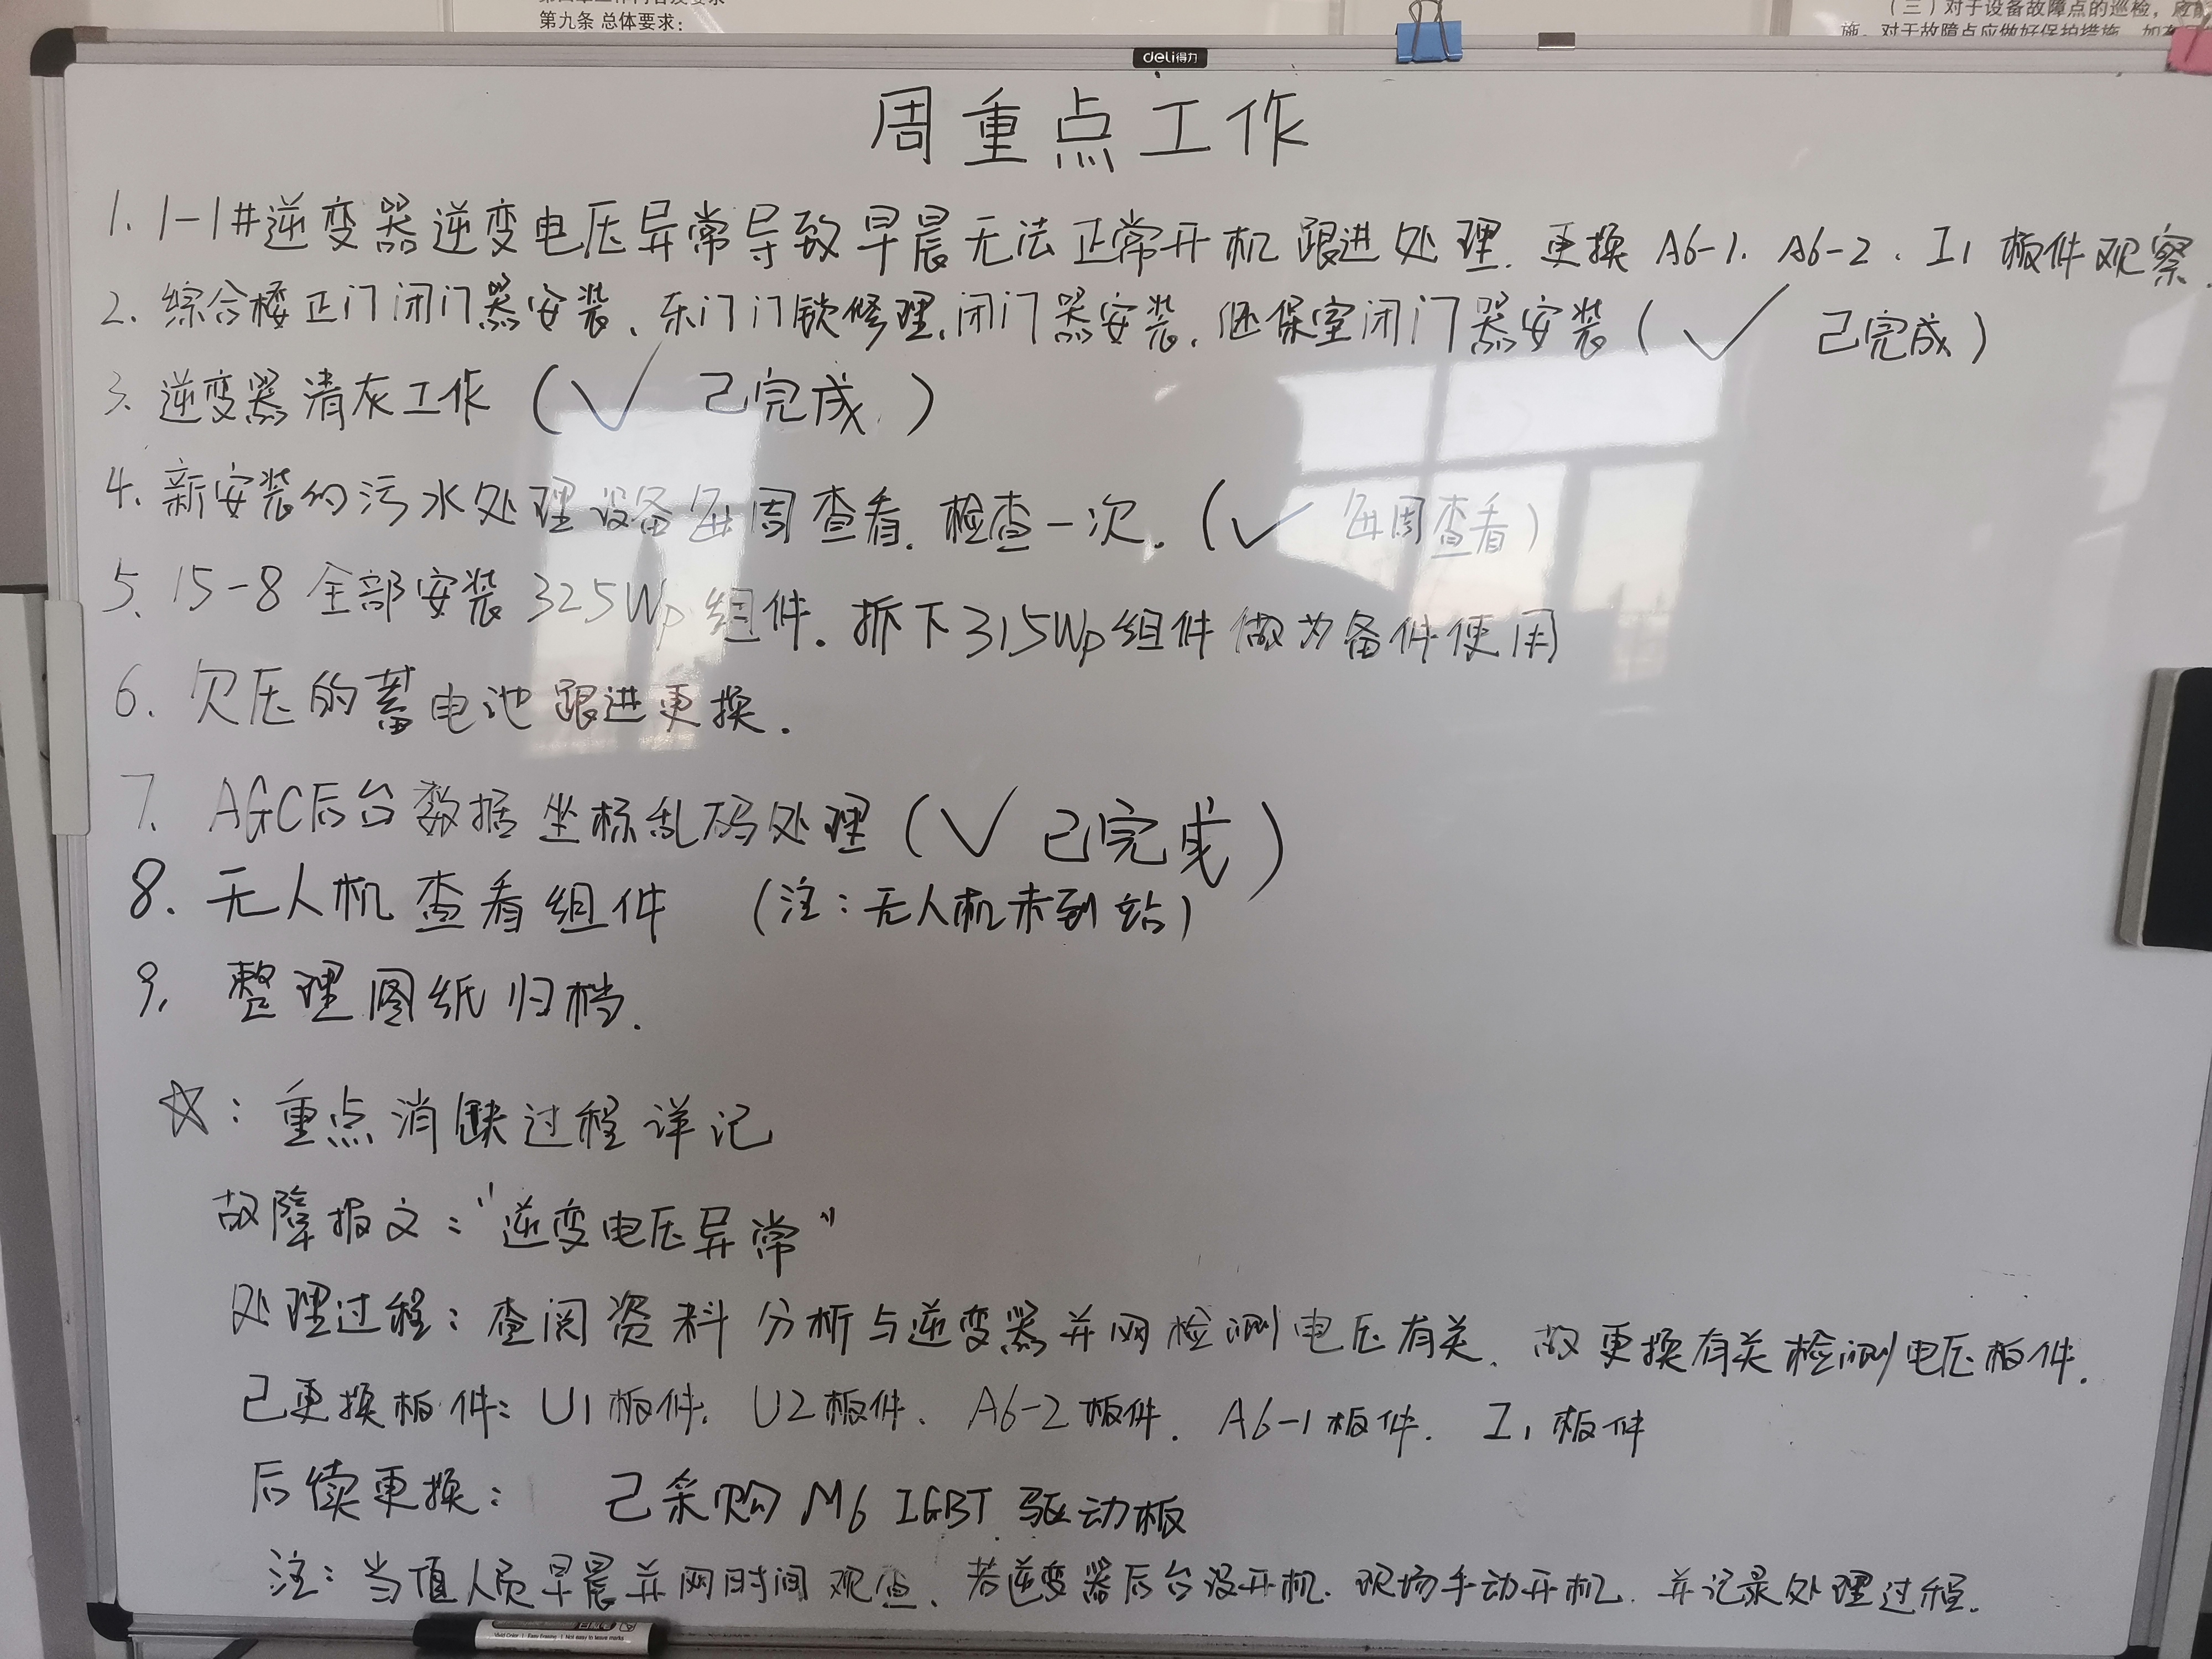 第九条 总体要求：
（三）对于设备故障点的巡检，应
施。对于故障点应做好保护措施，如在
deli得力
周重点工作
1. 1-1#逆变器逆变电压异常导致早晨无法正常开机跟进处理. 更换 A6-1. A6-2 . I1 板件观察.
2. 综合楼正门闭门器安装、东门门锁修理、闭门器安装、继保室闭门器安装 ( ✓ 已完成 )
3. 逆变器清灰工作 ( ✓ 已完成 )
4. 新安装的污水处理设备每周查看. 检查一次. ( ✓ 每周查看 )
5. 15-8 全部安装 325Wp 组件. 拆下 315Wp 组件做为备件使用
6. 欠压的蓄电池跟进更换.
7. AGC后台数据坐标乱码处理 ( ✓ 已完成 )
8. 无人机查看组件 (注：无人机未到站)
9. 整理图纸归档.
☆：重点消缺过程详记
故障报文："逆变电压异常"
处理过程：查阅资料分析与逆变器并网检测电压有关、故更换有关检测电压板件.
已更换板件：U1板件. U2板件、A6-2板件. A6-1板件. I1板件
后续更换： 已采购 M6 IGBT 驱动板
注：当值人员早晨并网时间观查、若逆变器后台没开机. 现场手动开机. 并记录处理过程.